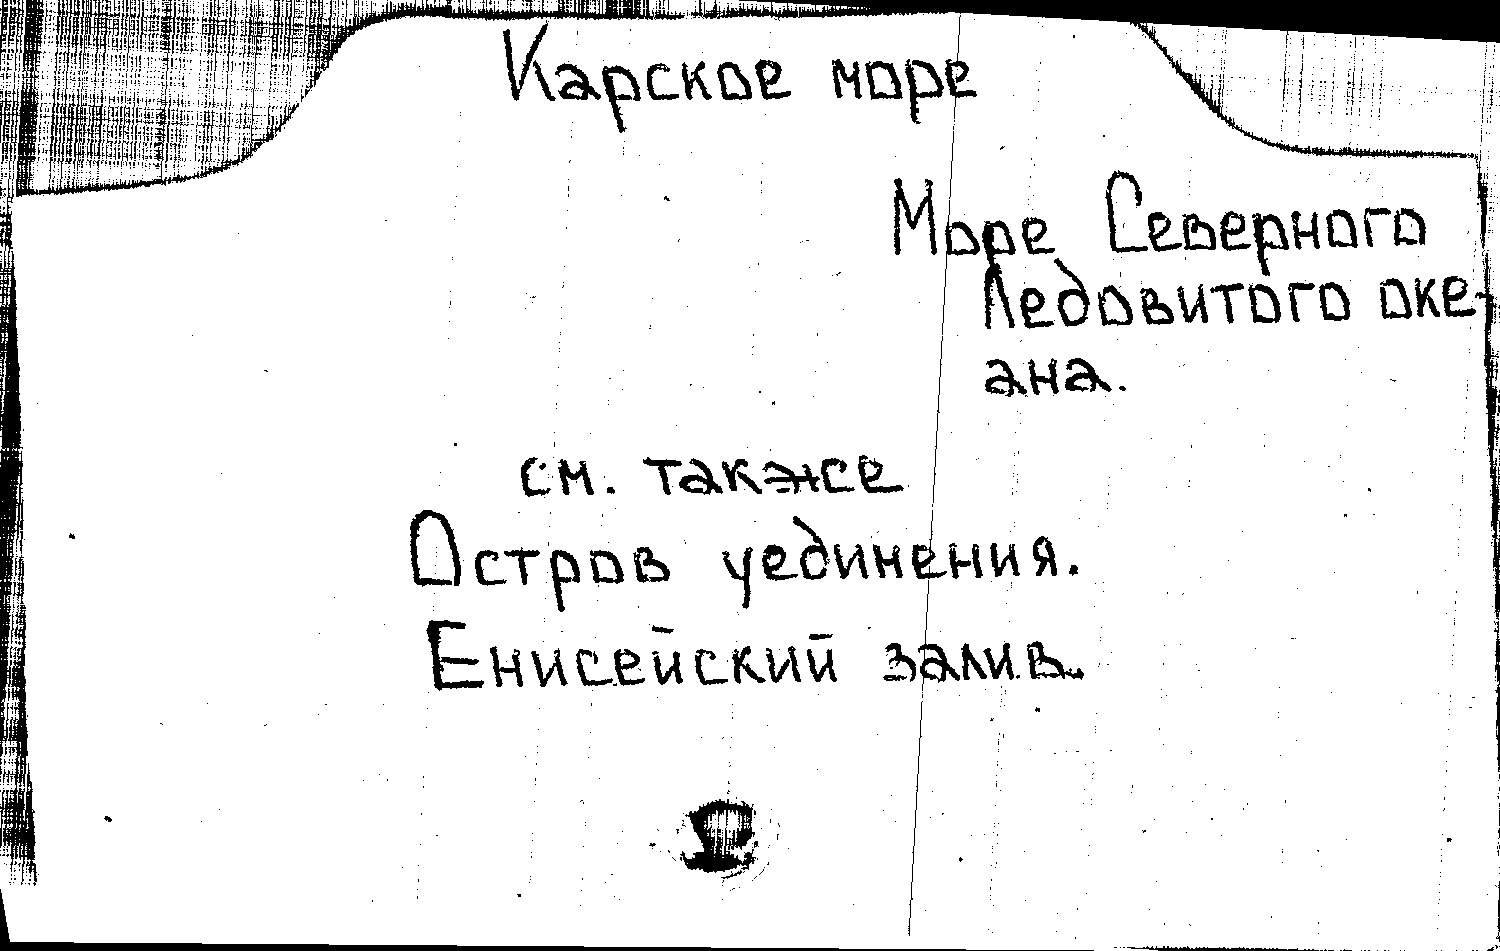 Карское море
Море Северного
Ледовитого оке-
ана.
см. также
Остров уединения.
Енисейский залив.